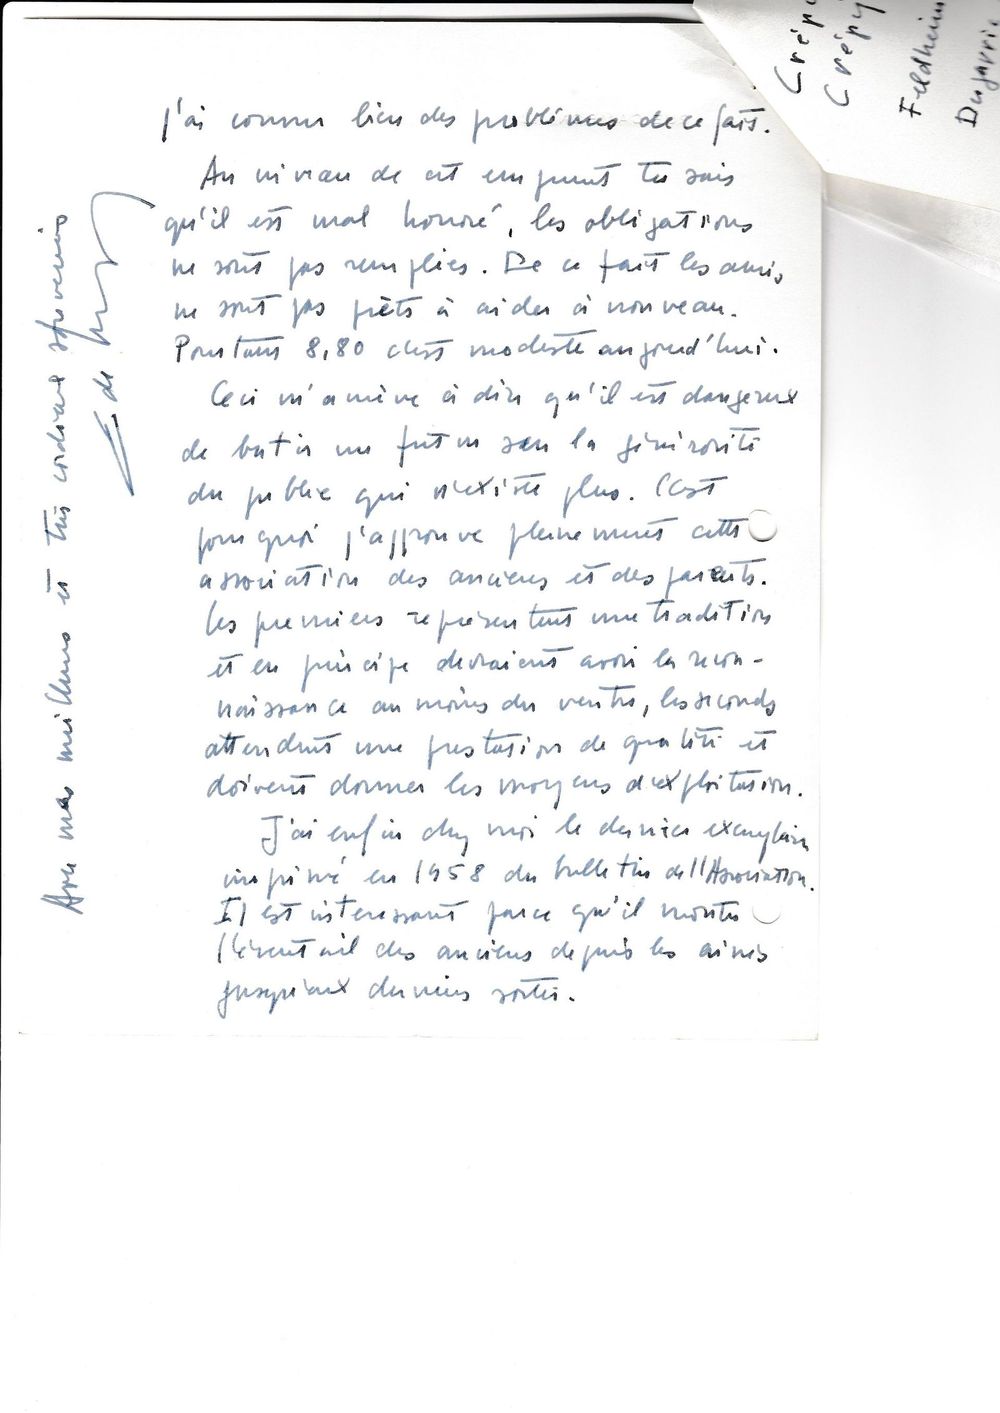 j'ai connu bien des problèmes de ce fait.
Au niveau de cet emprunt tu sais
qu'il est mal honoré, les obligations
ne sont pas remplies. De ce fait les amis
ne sont pas prêts à aider à nouveau.
Pourtant 8,80 c'est modeste aujourd'hui.
Ceci m'amène à dire qu'il est dangereux
de batir un futur sur la générosité
du public qui n'existe plus. C'est
pourquoi j'approuve pleinement cette
association des anciens et des parents.
Les premiers représentent une tradition
et en principe devraient avoir la recon-
naissance au moins du ventre, les seconds
attendent une prestation de qualité et
doivent donner les moyens d'exploitation.
J'ai enfin chez moi le dernier exemplaire
imprimé en 1958 du bulletin de l'Association.
Il est intéressant parce qu'il montre
l'éventail des anciens depuis les ainés
jusqu'aux derniers sortis.
Avec mes meilleurs et très cordiaux souvenirs
E de
Crépy
Feldheim